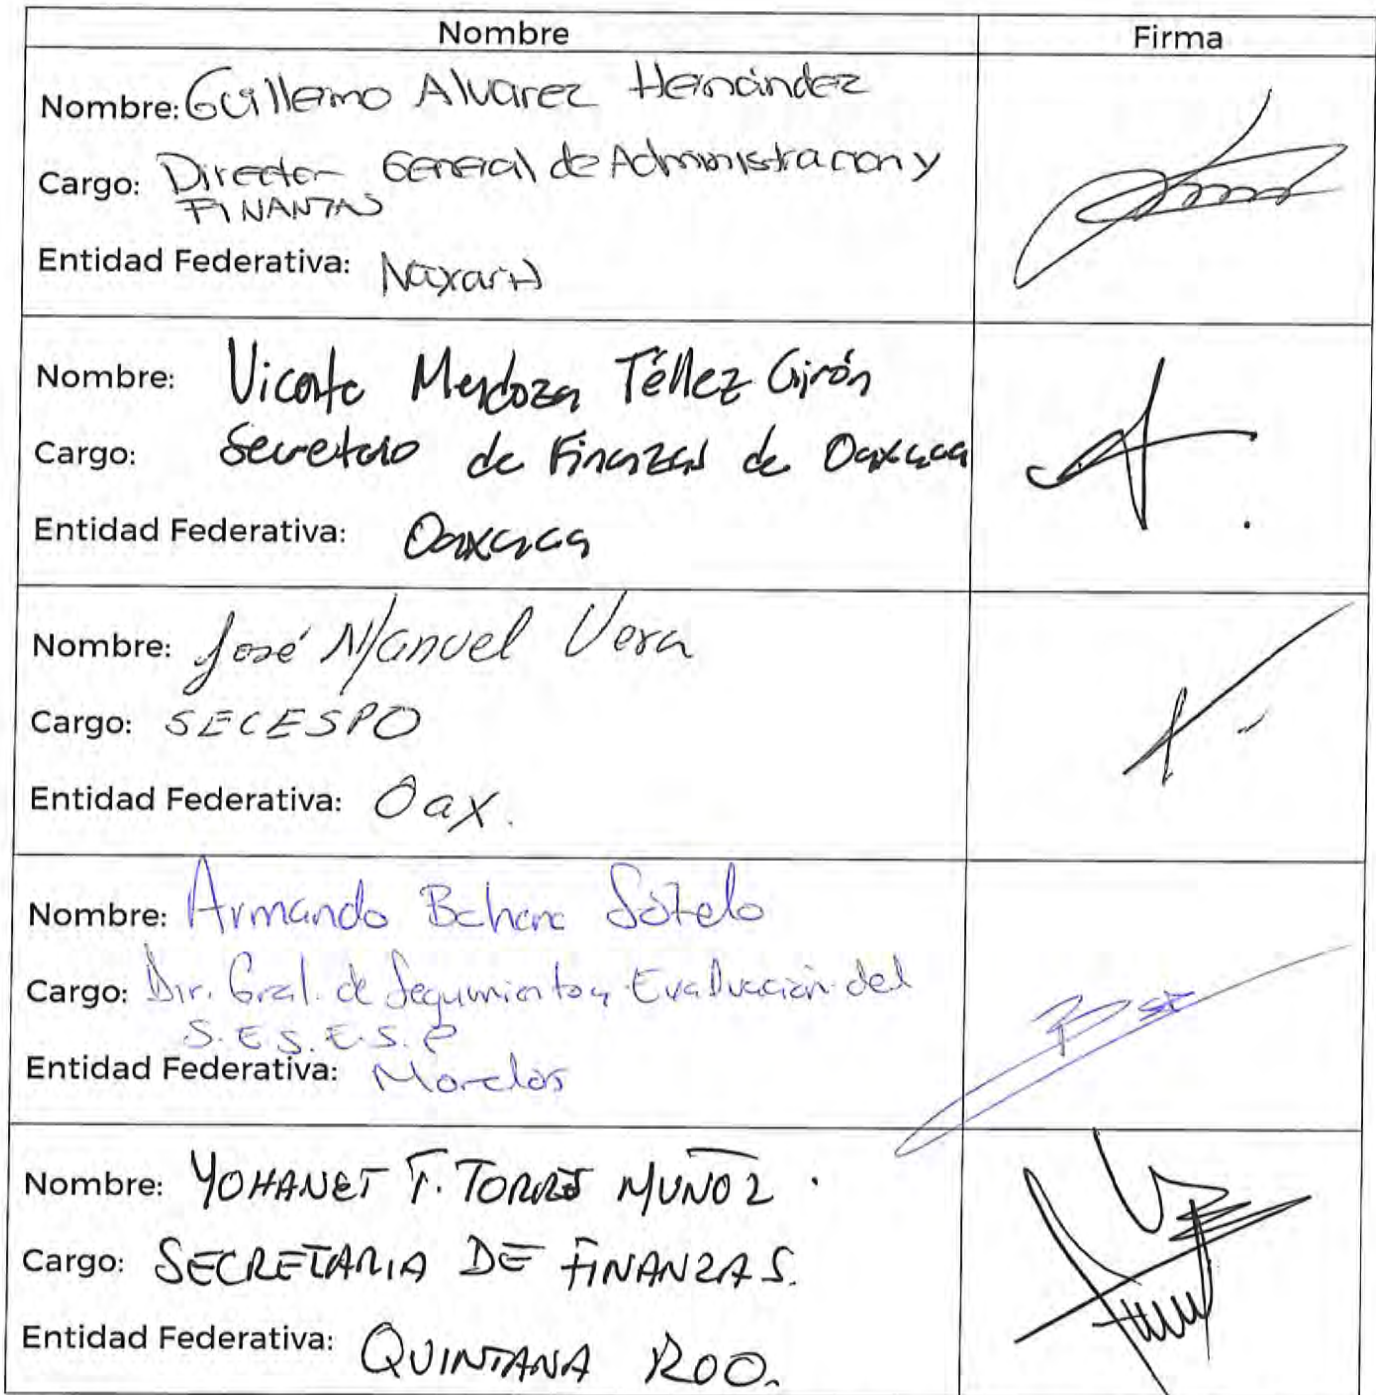 Nombre
Firma
Nombre: Guillermo Alvarez Hernández
Cargo: Director General de Administracion y
FINANZAS
Entidad Federativa: Nayarit
Nombre: Vicente Mendoza Téllez Girón
Cargo: Secretario de Finanzas de Oaxaca
Entidad Federativa: Oaxaca
Nombre: José Manuel Vera
Cargo: SECESPO
Entidad Federativa: Oax.
Nombre: Armando Bahena Sotelo
Cargo: Dir. Gral. de Seguimiento y Evaluación del
S.E.S.E.S.P
Entidad Federativa: Morelos
Nombre: YOHANET T. TORRES MUÑOZ.
Cargo: SECRETARIA DE FINANZAS.
Entidad Federativa: QUINTANA ROO.